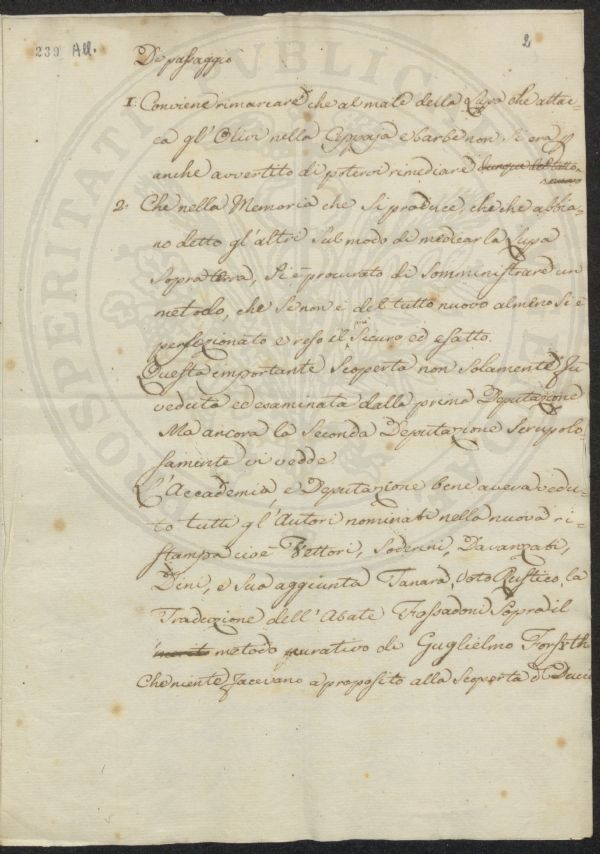 239 All.
2
Di passaggio
1: Conviene rimarcare che al male della Lupa che attac-
ca gl'Olivi nella Ceppaja e barbe non si era
anche avvertito di potervi rimediare
2: Che nella Memoria che si produce, che che abbia-
no detto gl'altri sul modo di medicar la Lupa
sopra terra, si è procurato di somministrare un
metodo, che se non è del tutto nuovo almeno si è
perfezionato e reso il più sicuro ed esatto.
Questa importante scoperta non solamente fu
veduta ed esaminata dalla prima Deputazione
Ma ancora la seconda Deputazione scrupolo-
samente vi vedde.
L'Accademia e Deputazione bene aveva vedu-
to tutti gl'Autori nominati nella nuova ri-
stampa cioè Vettori, Soderini, Davanzati,
Dini, e sua aggiunta Tanara Voto Rustico, la
Traduzione dell'Abate Fossadoni sopra il
metodo curativo di Guglielmo Forsyth
Che niente facevano a proposito alla scoperta di Ducci
PROSPERITATI PUBLICAE